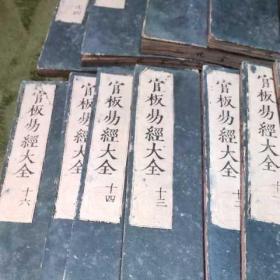 官板易經大全 十六
官板易經大全
官板易經大全 十四
官板易經大全 十三
官板易經大全 十二
官板易經大全